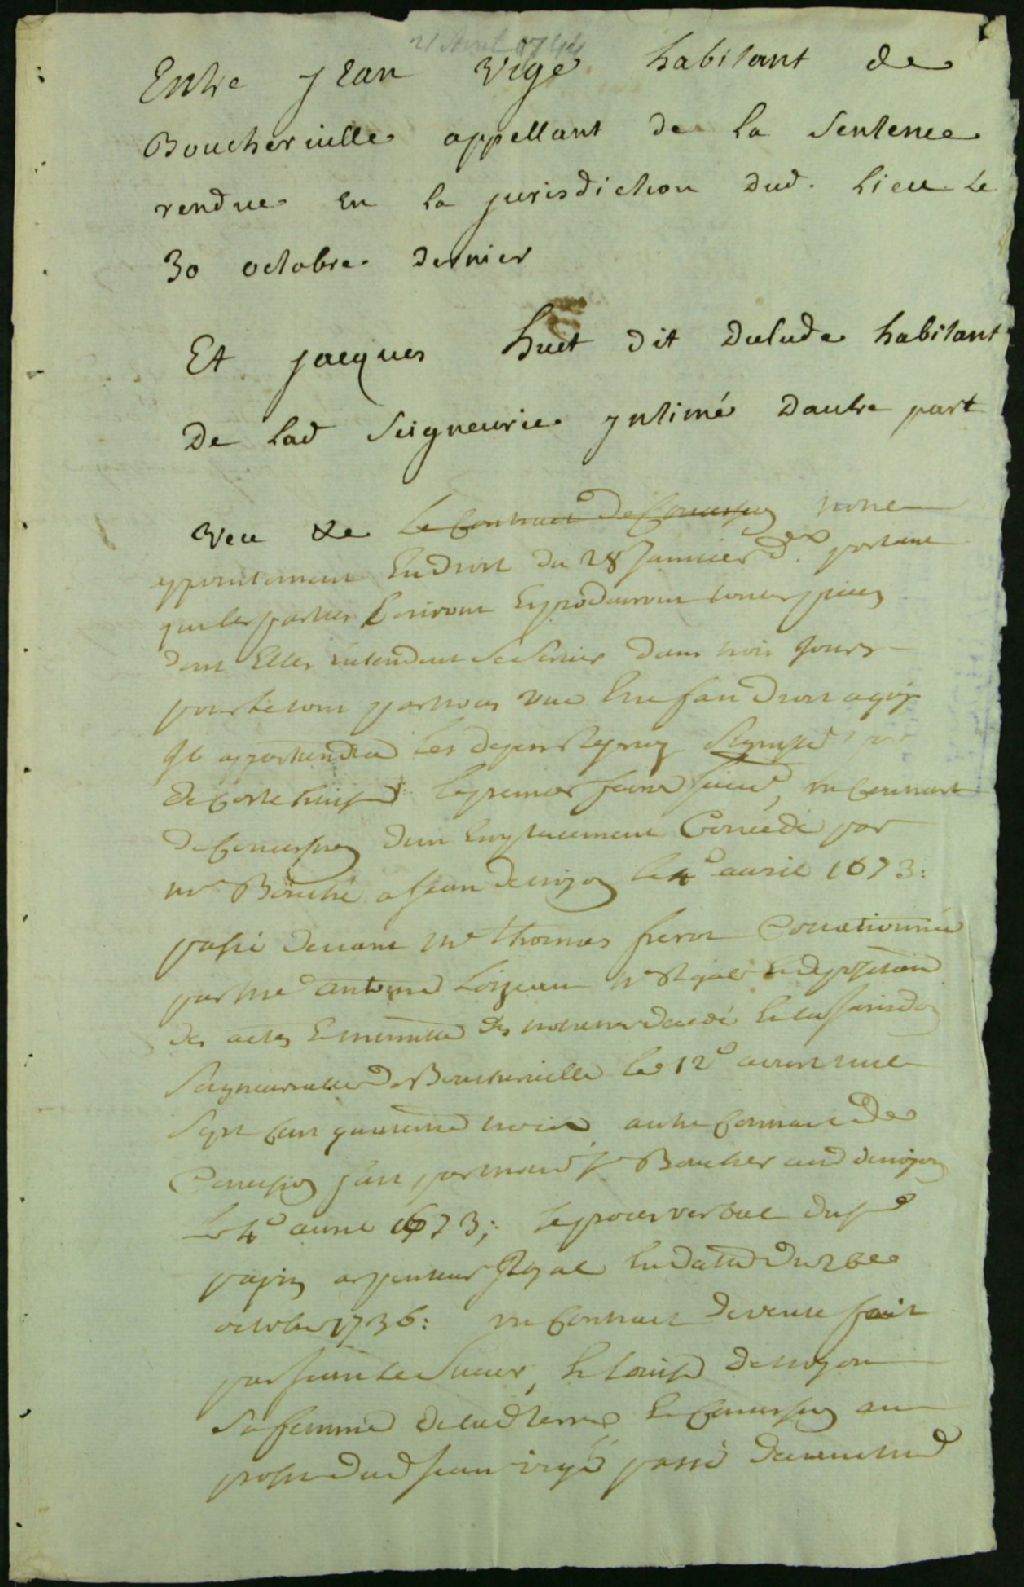 21 Avril 1744
Entre Jean Vigé habitant de
Boucherville appellant de la Sentence
rendue en la jurisdiction dud. Lieu le
30 octobre dernier
Et jacques huet dit dulude habitant
De lad Seigneurie yntimé Dautre part
Veu &e Le Contract de Concession notre
appointement En Droit du 28 Janvier dr. portant
que les parties Ecriront Et produiront toutes pieces
dont Elles Entendent se servir dans trois Jours
pour le tout par nous vue Etre fait droit ainsy
quil appartiendra les depens
un Contract
de Concession dun Emplacement Concedé par
Mr Bouché a Jean denoyon le 4e avril 1673:
passé devant Me thomas frerot Collationnée
par Me antoine Loyseau Nre Royal Et depositaire
des actes Et minuttes des notaires decedé En la Jurisdon
Seigneurialle de Boucherville le 12e aoust mil
Sept Cent quarente trois, autre Contract de
Concession fait par mond. Sr Boucher aud denoyon
Le 4e avril 1673; le proces verbal du Sr
papin arpenteur Royal En datte du 26e
octobre 1736: un Contract de vente fait
par Jean Le Sueur, Et Louise Denoyon
Sa femme de lad terre Et Concession au
profit dud Jean vigé passé devant led